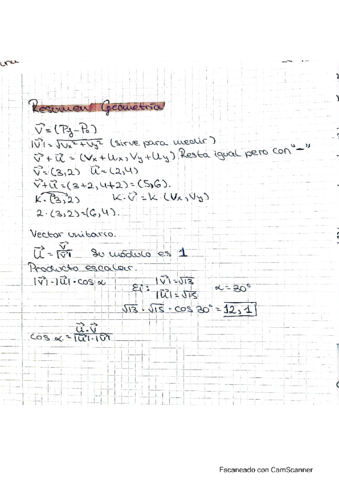 Resumen Geometría
V⃗ = (Pf - Po)
|V⃗| = √Vx² + Vy² (sirve para medir)
V⃗ + U⃗ = (Vx + Ux, Vy + Uy). Resta igual pero con "-"
V⃗ = (3,2) U⃗ = (2,4)
V⃗+U⃗ = (3+2, 4+2) = (5,6).
K · (3,2) K · V⃗ = K · (Vx, Vy)
2 · (3,2) = (6,4).
Vector unitario.
U⃗ = V⃗/|V⃗| Su módulo es 1
Producto escalar.
|V⃗| · |U⃗| · cos α Ej: |V⃗| = √13 α = 30°
|U⃗| = √15
√13 · √15 · cos 30° = 12,1
cos α = U⃗ · V⃗ / |U⃗| · |V⃗|
Escaneado con CamScanner